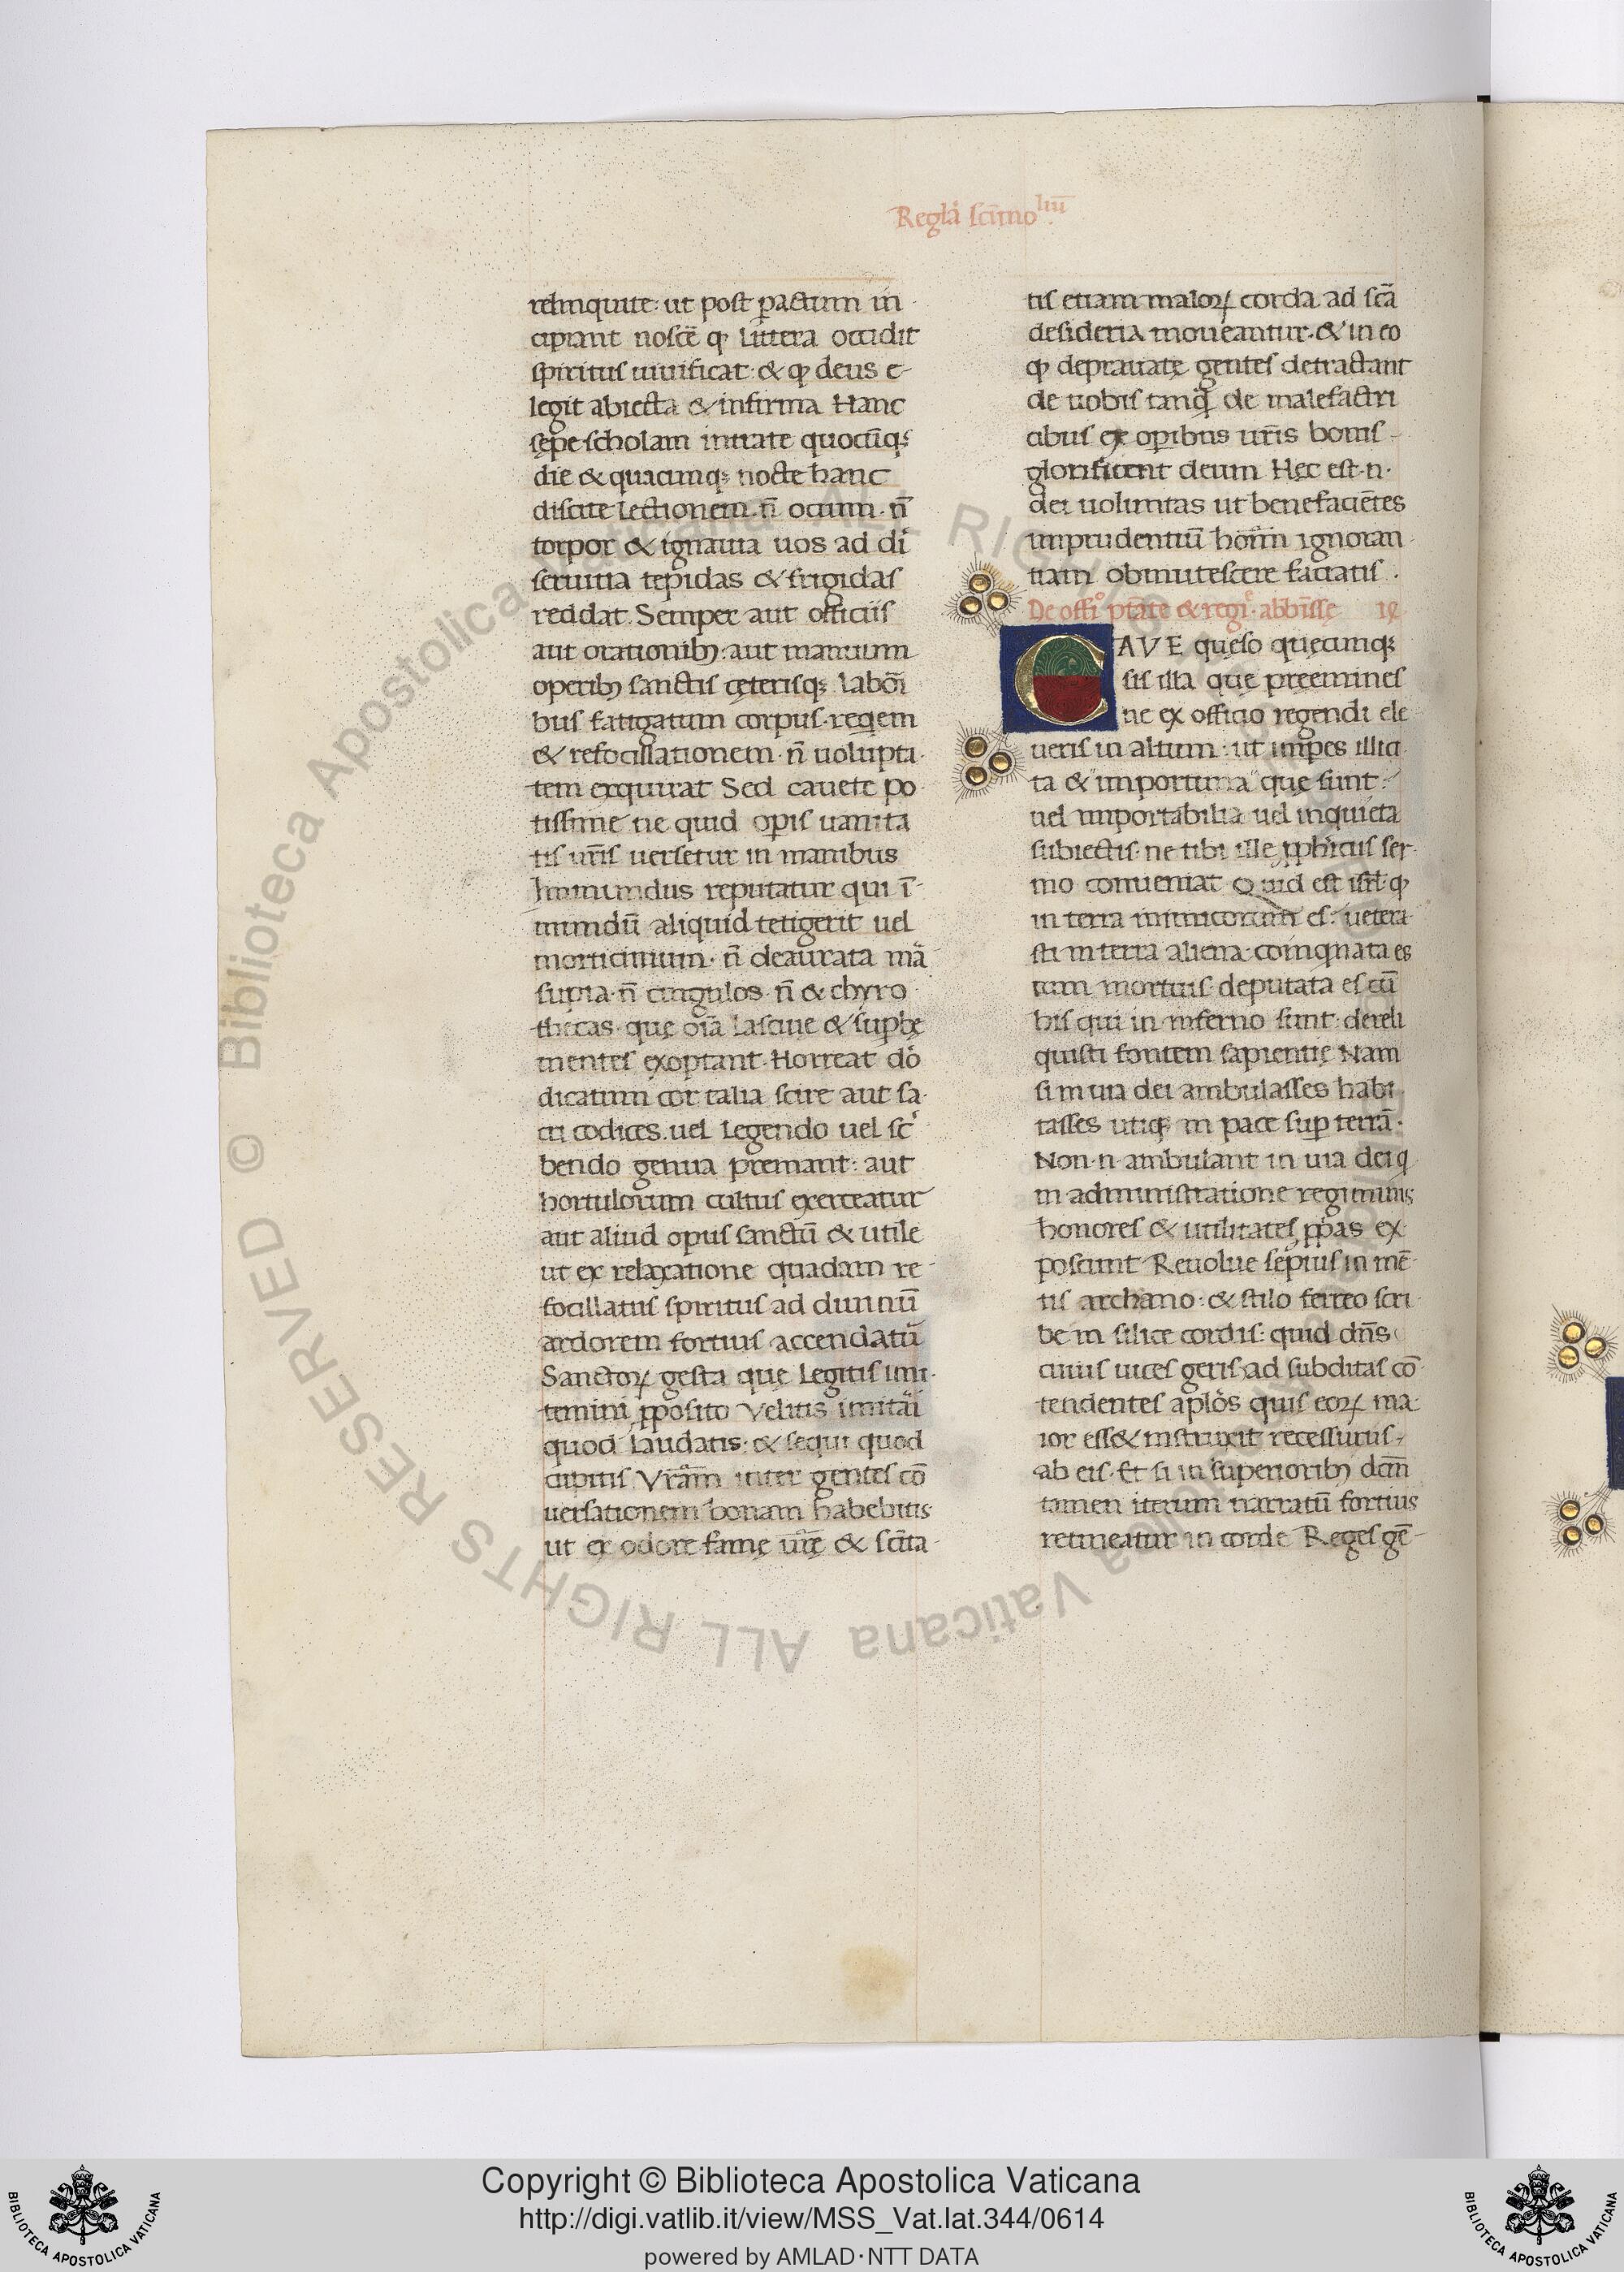 Regl̃a sc̃imoliũ
relinquite: ut post ꝑactum in
cipiant nosc̃e ꝙ littera occidit
spiritus uiuificat: & ꝙ deus e-
legit abiecta & infirma Hanc
sępe scholam intrate quocũq;
die & quacunq; nocte hanc
discite lectionem. ñ ocium. ñ
torpor & ignauia uos ad di
seruitia tepidas & frigidas
reddat. Semper aut officiis
aut orationibꝫ: aut manuum
operibꝫ sanctis cęterisq; labori
bus fatigatum corpus. reqem
& refocillationem. ñ uolupta
tem exquirat Sed cauete po
tissime ne quid opis uanita
tis ur̃is uersetur in manibus
Inmundus reputatur qui ĩ-
mundũ aliquid tetigerit uel
morticinium. ñ deaurata mã
supia. ñ cingulos. ñ & chyro
thecas. que oĩa lasciue & supbę
mentes exoptant. Horreat do
dicatum cor talia scire aut sa
cri codices. uel legendo uel sc
bendo genua premant: aut
hortulorum cultus exerceatur
aut aliud opus sanctũ & utile
ut ex relaxatione quadam re-
focillatus spiritus ad diuinũ
ardorem fortius accendatũ
Sanctoꝝ gesta que legitis imi-
temini ꝓposito Velitis imitãi
quod laudatis: & sequi quod
cupitis Vr̃am inter gentes cõ
uersationem bonam habebitis
ut ex odore famę ur̃ę & sc̃ita-
tis etiam maloꝝ corda ad sc̃a
desideria moueantur. & in eo
ꝙ deprauatę gentes detractant
de uobis tanq̃ de malefactri
cibus ex opibus ur̃is bonis-
glorificent deum Hęc est. n.
dei uoluntas ut benefaciẽtes
imprudentiũ hom̃in ignoran
tiam obmutescere faciatis.
De offi° ptãte & regi. abbĩssę IX
CAVE queso quęcunq;
sis illa que preemines
ne ex officio regendi ele
ueris in altum: ut impes illici
ta & importuna que sunt
uel importabilia uel inquieta
subiectis. ne tibi ille ꝓphicus ser-
mo conueniat Quid est isrl̃. ꝙ
in terra inimicorum es: uetera
sti in terra aliena. coinqnata es
cum mortuis. deputata es cũ
his qui in inferno sunt: dereli
quisti fontem sapientię Nam
si in uia dei ambulasses habi
tasses utiq; in pace sup terrã.
Non. n. ambulant in uia dei q
in administratione regiminis
honores & utilitates ꝓpas ex-
poscunt Reuolue sepius in mẽ-
tis archano: & stilo ferreo scri
be in silice cordis: quid dñs
cuius uices geris ad subditas cõ
tendentes aplõs quis eoꝝ ma-
ior ess& instruxit recessurus-
ab eis. Et si in superioribꝫ dc̃m
tamen iterum narratũ fortius
retineatur in corde Reges gẽ-
© Biblioteca Apostolica Vaticana ALL RIGHTS RESERVED
Copyright © Biblioteca Apostolica Vaticana
http://digi.vatlib.it/view/MSS_Vat.lat.344/0614
powered by AMLAD·NTT DATA
BIBLIOTECA APOSTOLICA VATICANA
BIBLIOTECA APOSTOLICA VATICANA